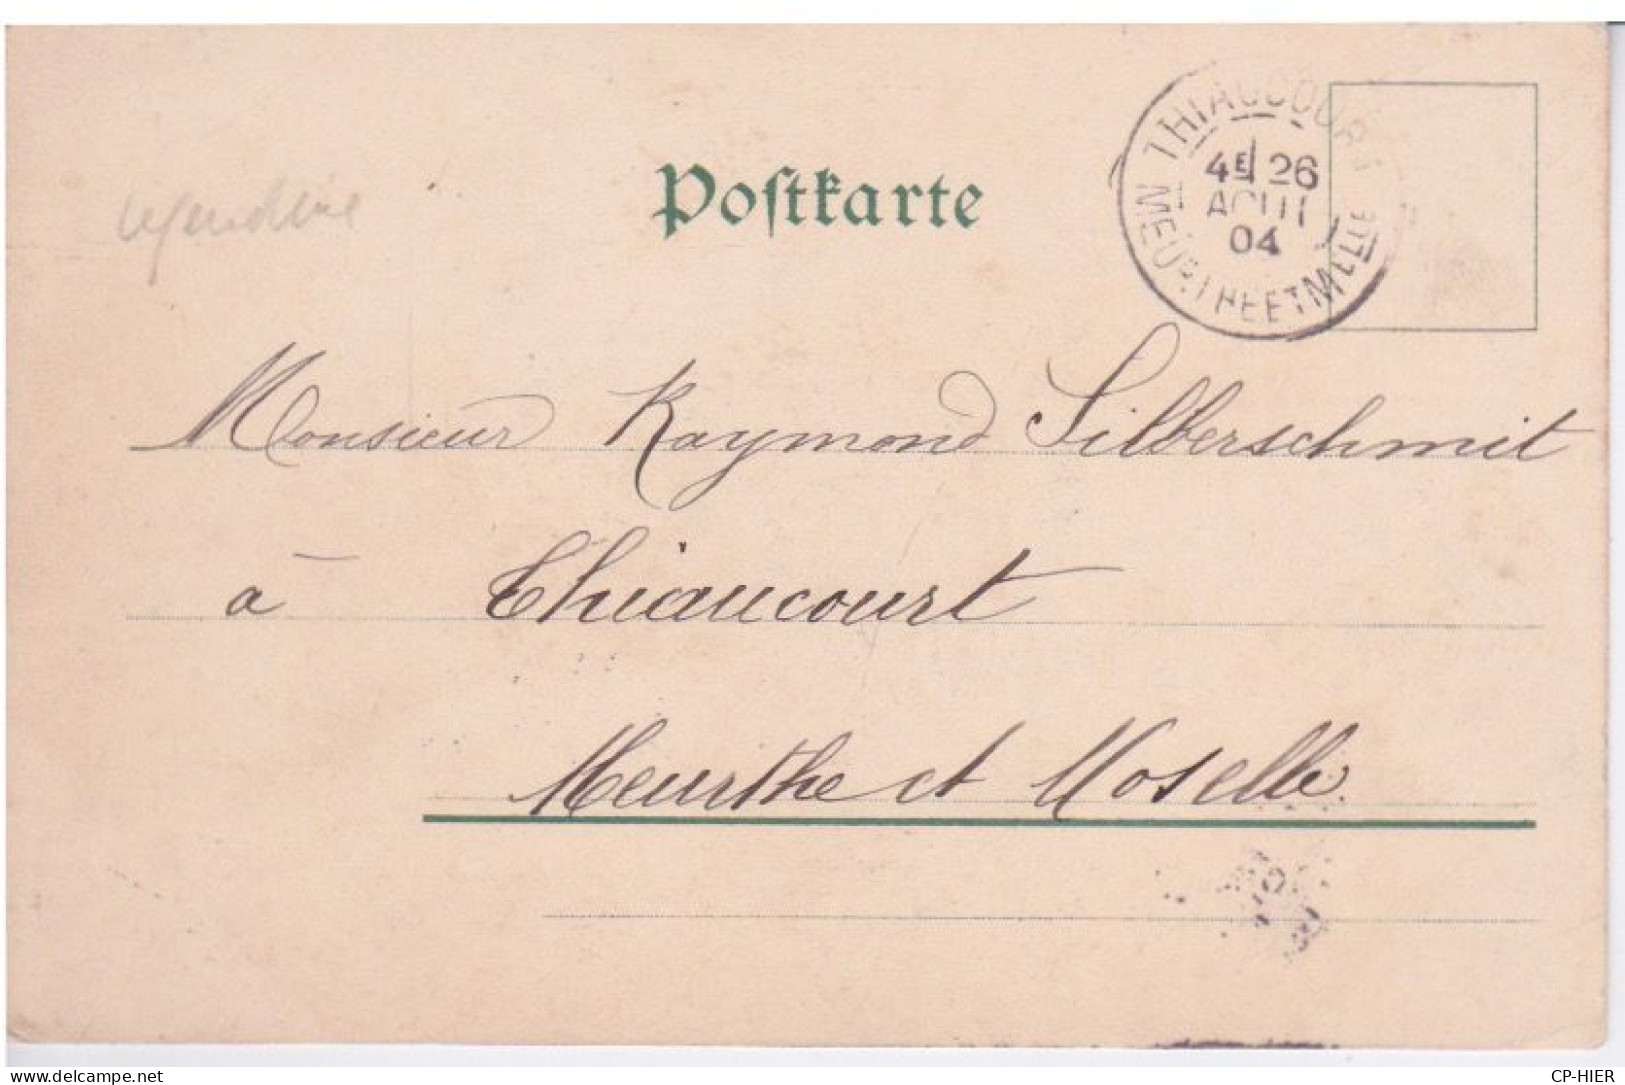 Postkarte
THIAUCOURT
4E 26
AOUT
04
MEURTHE ET MLLE
Monsieur Raymond Silberschmit
à Thiaucourt
Meurthe et Moselle
https://www.delcampe.net
CP-HIER